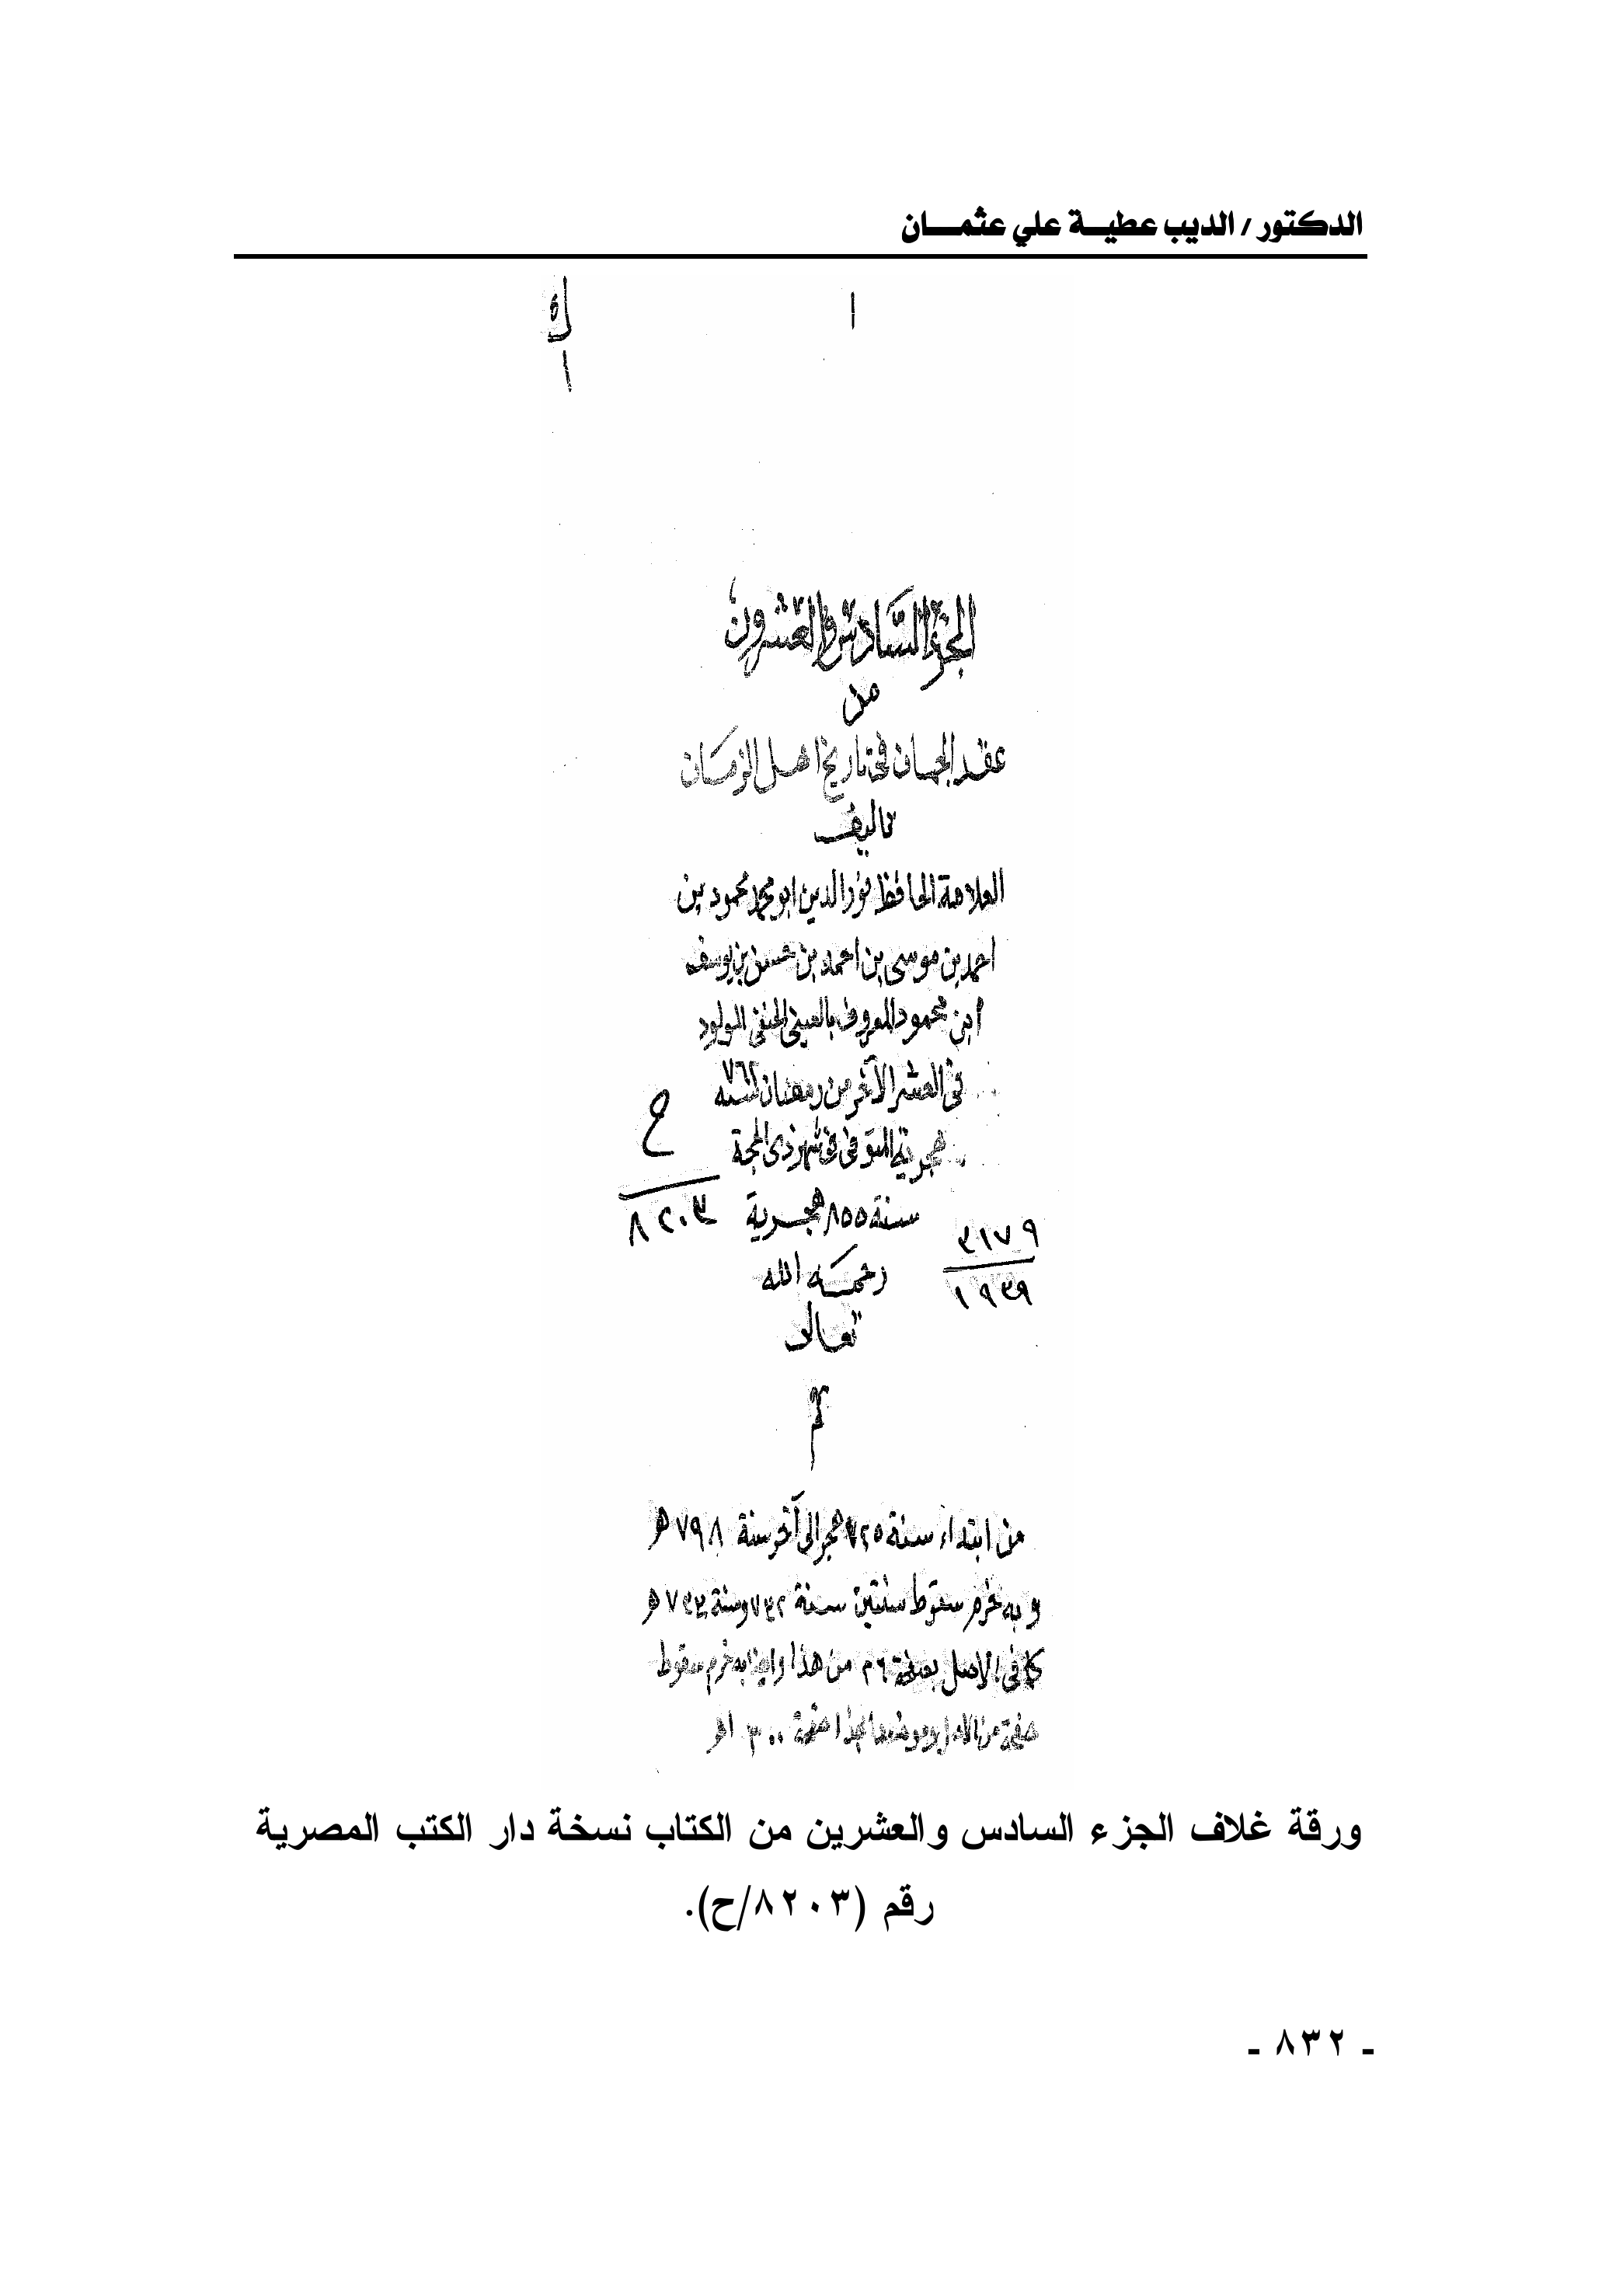 الدكتور / الديب عطيـــة علي عثمـــــان
ك
١
١
الجزء السادس والعشرون
من
عقد الجمان فى تاريخ اهل الزمان
تاليف
العلامة الحافظ نور الدين ابو محمد محمود بن
احمد بن موسى بن احمد بن حسين بن يوسف
ابن محمود المعروف بالعينى الحنفى المولود
فى العشر الآخر من رمضان سنة ٧٦٢
هجرية المتوفى فى شهر ذى الحجة
سنة ٨٥٥ هجرية
ح
٨٢٠٣
٣١٧٩
١٩٣٩
رحمه الله
تعالى
م
من ابتداء سنة ٧٢٥ هجر الى آخر سنة ٧٩٨ هـ
وبه خرم سقوط سنتين سنة ٧٣٢ وسنة ٧٣٣ هـ
كما فى الاصل بصفحة من هذا وايضا به خرم سقوط
صفحة من صفحة ٣٠٠ اهـ
ورقة غلاف الجزء السادس والعشرين من الكتاب نسخة دار الكتب المصرية
رقم (٨٢٠٣/ح).
ـ ٨٣٢ ـ